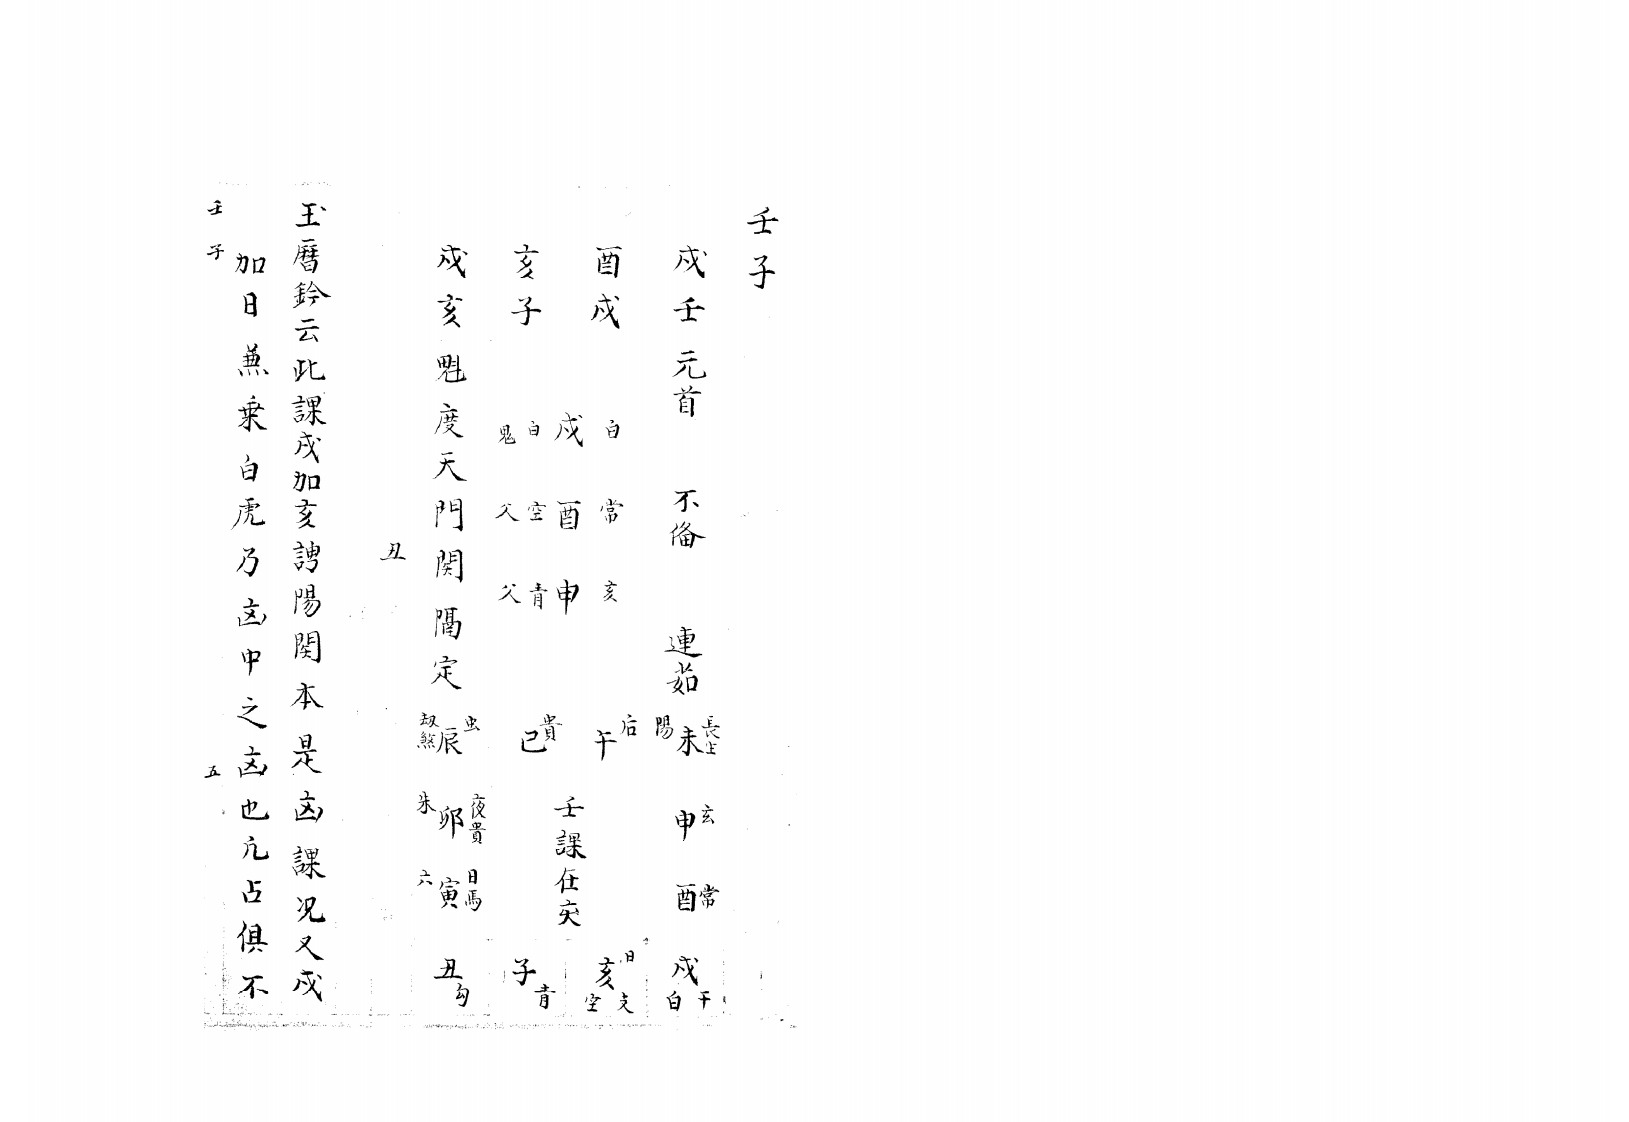 壬子
戍壬元首 不俻 連茹
酉戍
亥子
戍亥魁度天門関隔定
白 常 亥
戍 酉 申
白 空 青
鬼 父 父
長生 玄 常 干
陽 未 申 酉 戍 白
后 午 日 亥 支 空
壬課在亥
貴 巳 子 青
虫 夜貴 日馬
辰 卯 寅 丑 勾
劫煞 朱 六
丑
玉曆鈐云此課戍加亥謂陽関本是凶課况又戍
加日兼乗白虎乃凶中之凶也凢占俱不
壬子 五